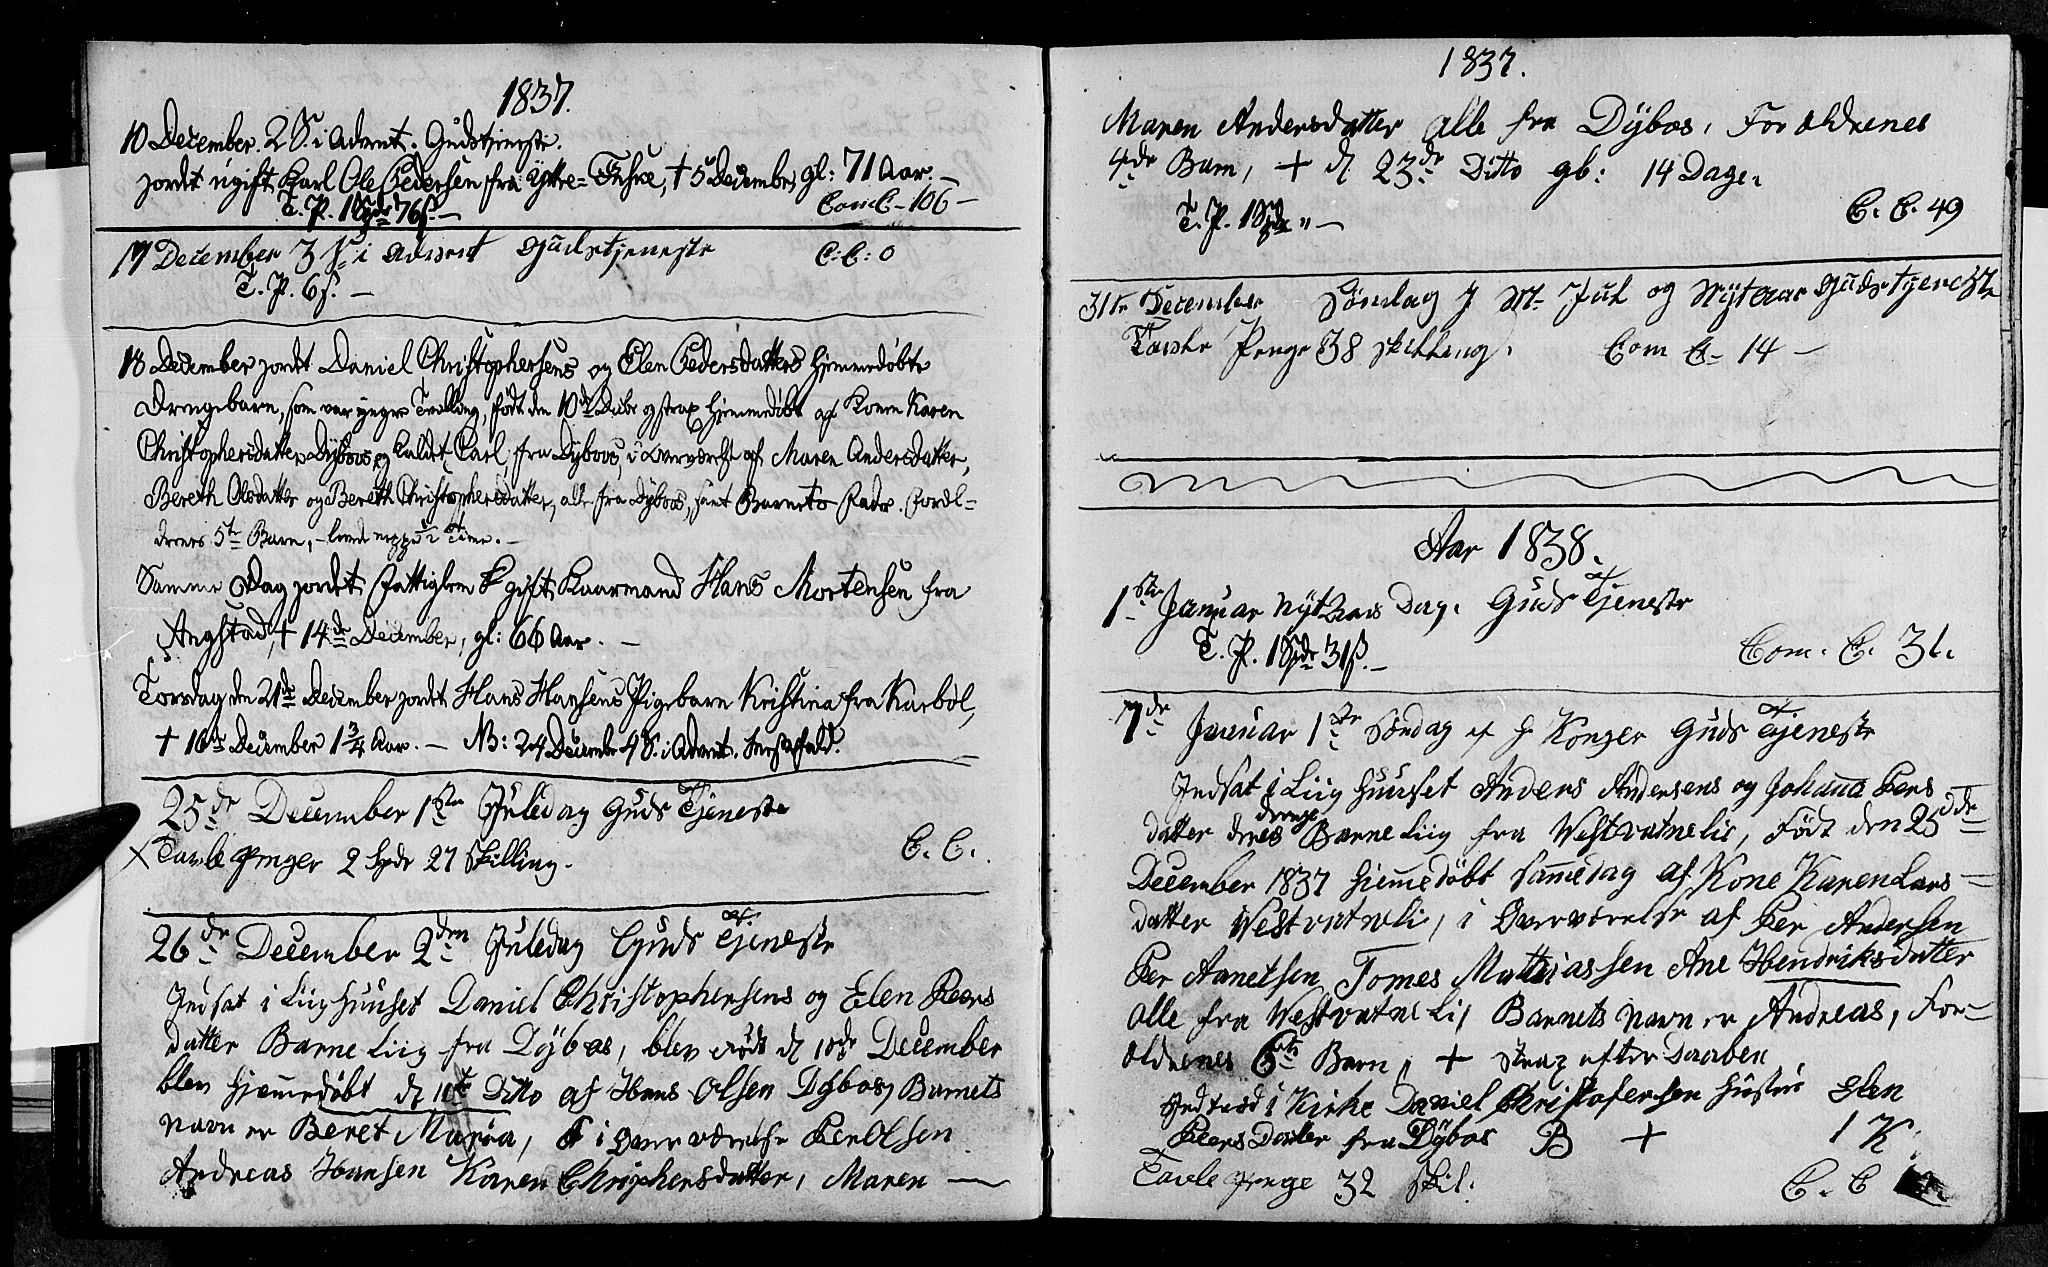 1837.
10 December. 2 S. i Advent. Gudstjeneste.
jordet ugift Karl Ole Pedersen fra Yttre= Fuhre, † 5 December, gl: 71 Aar. —
T. P. 1 Spdr 76 ß. — Com C - 106 —
17 December 3 S. i Advent Gudstjeneste C: C: 0
T. P. 6 ß. —
18 December jordet Daniel Christophersens og Elen Pedersdatters hjemmedøbte
Drengebarn, som var yngre Tvilling, født den 10de Dcbr og strax hjemmedøbt af Konen Karen
Christophersdatter Dybvos og kaldet Carl, fra Dybvos, i Overværelse af Maren Andersdatter,
Bereth Olsdatter og Bereth Christophersdatter, alle fra Dybvos, samt Barnets Fader. Foræl-
drenes 5te Barn, – levede neppe 1/2 Time. —
Samme Dag jordet Fattiglem gift Kaarmand Hans Mortensen fra
Angstad, † 14de December, gl: 66 Aar. —
Torsdag den 21de December jordet Hans Hansens Pigebarn Kristina fra Karbøl,
† 16de December 1 3/4 Aar. — NB: 24 December 4 S. i Advent. Messefald.
25de December 1ste Juledag Guds Tjeneste
X Tavle Penger 2 Spdr 27 Skilling. C. C.
26de December 2den Juledag Guds Tjeneste
Indsat i Liighuuset Daniel Christophersens og Elen Peers
datter Barne Liig fra Dybos, blev født d 10de December
blev hjemmedøbt d 11te Ditto af Hans Olsen Dybos, Barnets
navn er Beret Maria, i Overværelse Per Olsen
Andreas Hansen Karen Chriphersdatter, Maren —
1837.
Maren Andersdatter alle fra Dybos, Forældrenes
4de Barn, + d 23de Ditto gl: 14 Dage.
T. P. 1 Spdr " — C. C. 49
31te December Søndag J M. Jul og Nytaar Gudstjeneste
Tavle Penge 38 skilling. Com C- 14 —
Aar 1838.
1ste Januar Nytaars Dag. Guds Tjeneste
T. P. 1 Spdr 31 ß. — Com. C. 31.
7de Januar 1ste Søndag ef H. Konger Guds Tjeneste
Indsat i Liig huuset Anders Andersens og Johana Pers
datter deres drenge Barne Liig fra Westvatnelie, Født den 25de
December 1837 hjemedøbt samedag af Kone Karen Lars-
datter Westvatnli, i Overværelse af Per Andersen
Per Aanetsen Tomes Mathiassen Ane Hendriksdatter
alle fra Westvatneli, Barnets navn er Andreas, For-
ældrenes 6te Barn, + strax efter Daaben
Indtræd i Kirke Daniel Christofersen hustru Elen
Peers Datter fra Dybos B + 1 K
Tavle Penge 32 Skil. C. C